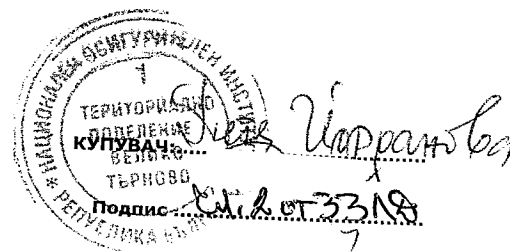 * НАЦИОНАЛЕН ОСИГУРИТЕЛЕН ИНСТИТУТ * РЕПУБЛИКА БЪЛГАРИЯ
1
ТЕРИТОРИАЛНО
ПОДЕЛЕНИЕ
ВЕЛИКО
ТЪРНОВО
КУПУВАЧ:
Подпис: чл. 2 от ЗЗЛД